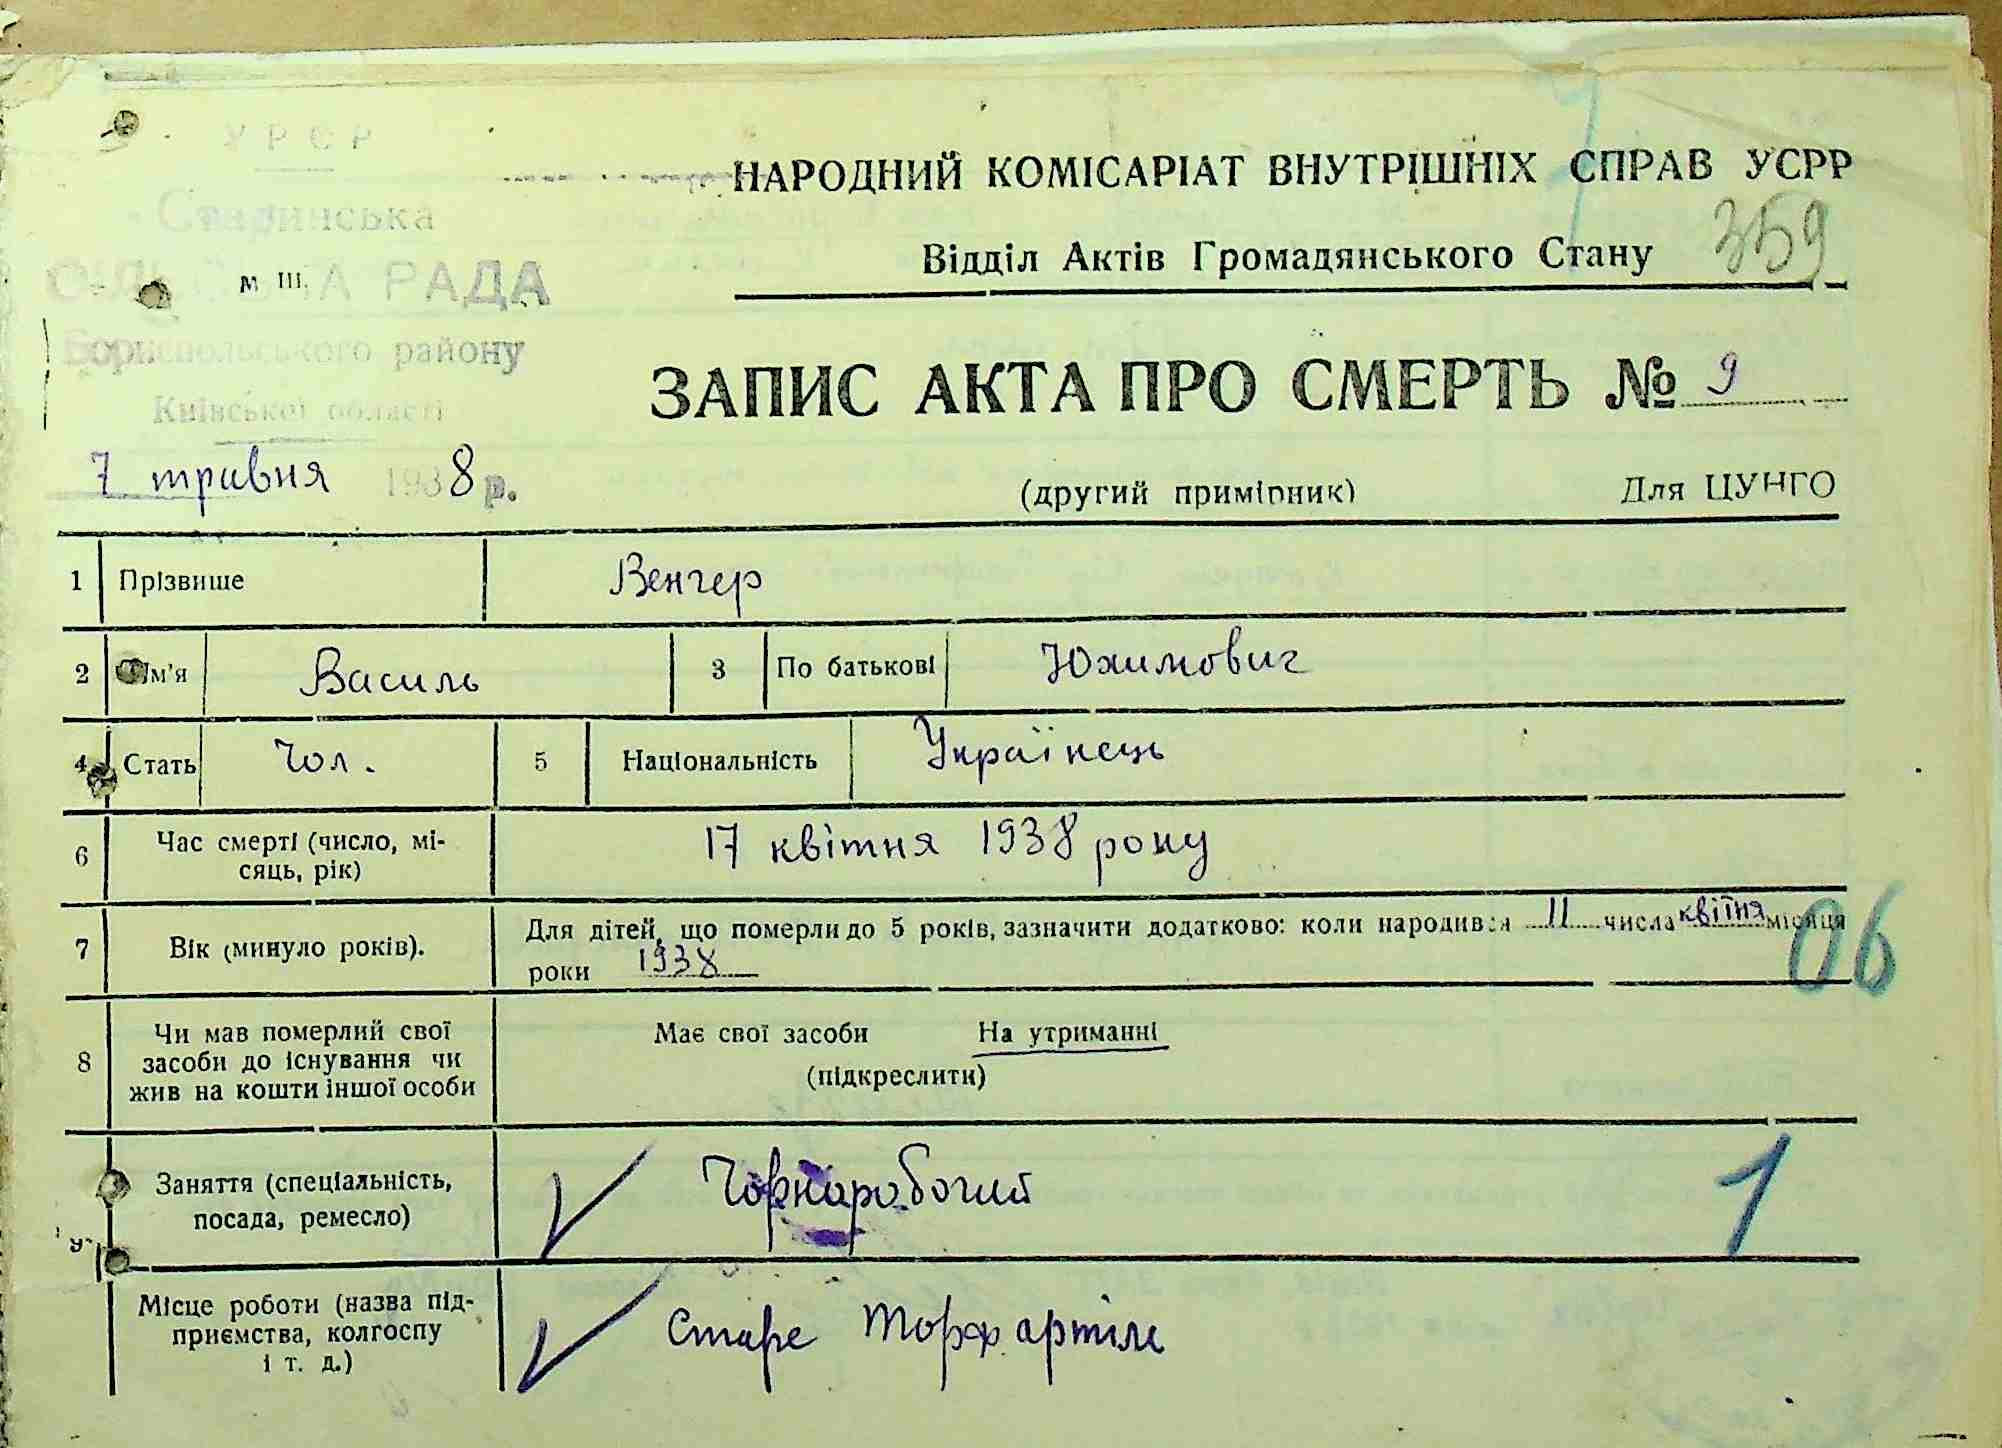 УРСР
НАРОДНИЙ КОМІСАРІАТ ВНУТРІШНІХ СПРАВ УСРР
Старинська
359
Відділ Актів Громадянського Стану
м III.
СІЛЬСЬКА РАДА
Бориспольського району
ЗАПИС АКТА ПРО СМЕРТЬ № 9
Київської області
7 травня 1938 р.
(другий примірник)
Для ЦУНГО
1 Прізвище Венгер
2 Ім'я Василь 3 По батькові Юхимович
4 Стать Чол. 5 Національність Українець
6 Час смерті (число, мі-
сяць, рік)
17 квітня 1938 року
7 Вік (минуло років).
Для дітей, що померли до 5 років, зазначити додатково: коли народився 11 числа квітня місяця
роки 1938
06
8 Чи мав померлий свої
засоби до існування чи
жив на кошти іншої особи
Має свої засоби На утриманні
(підкреслити)
9
Заняття (спеціальність,
посада, ремесло)
Чорноробочий
1
Місце роботи (назва під-
приємства, колгоспу
і т. д.)
Старе Торфартіль